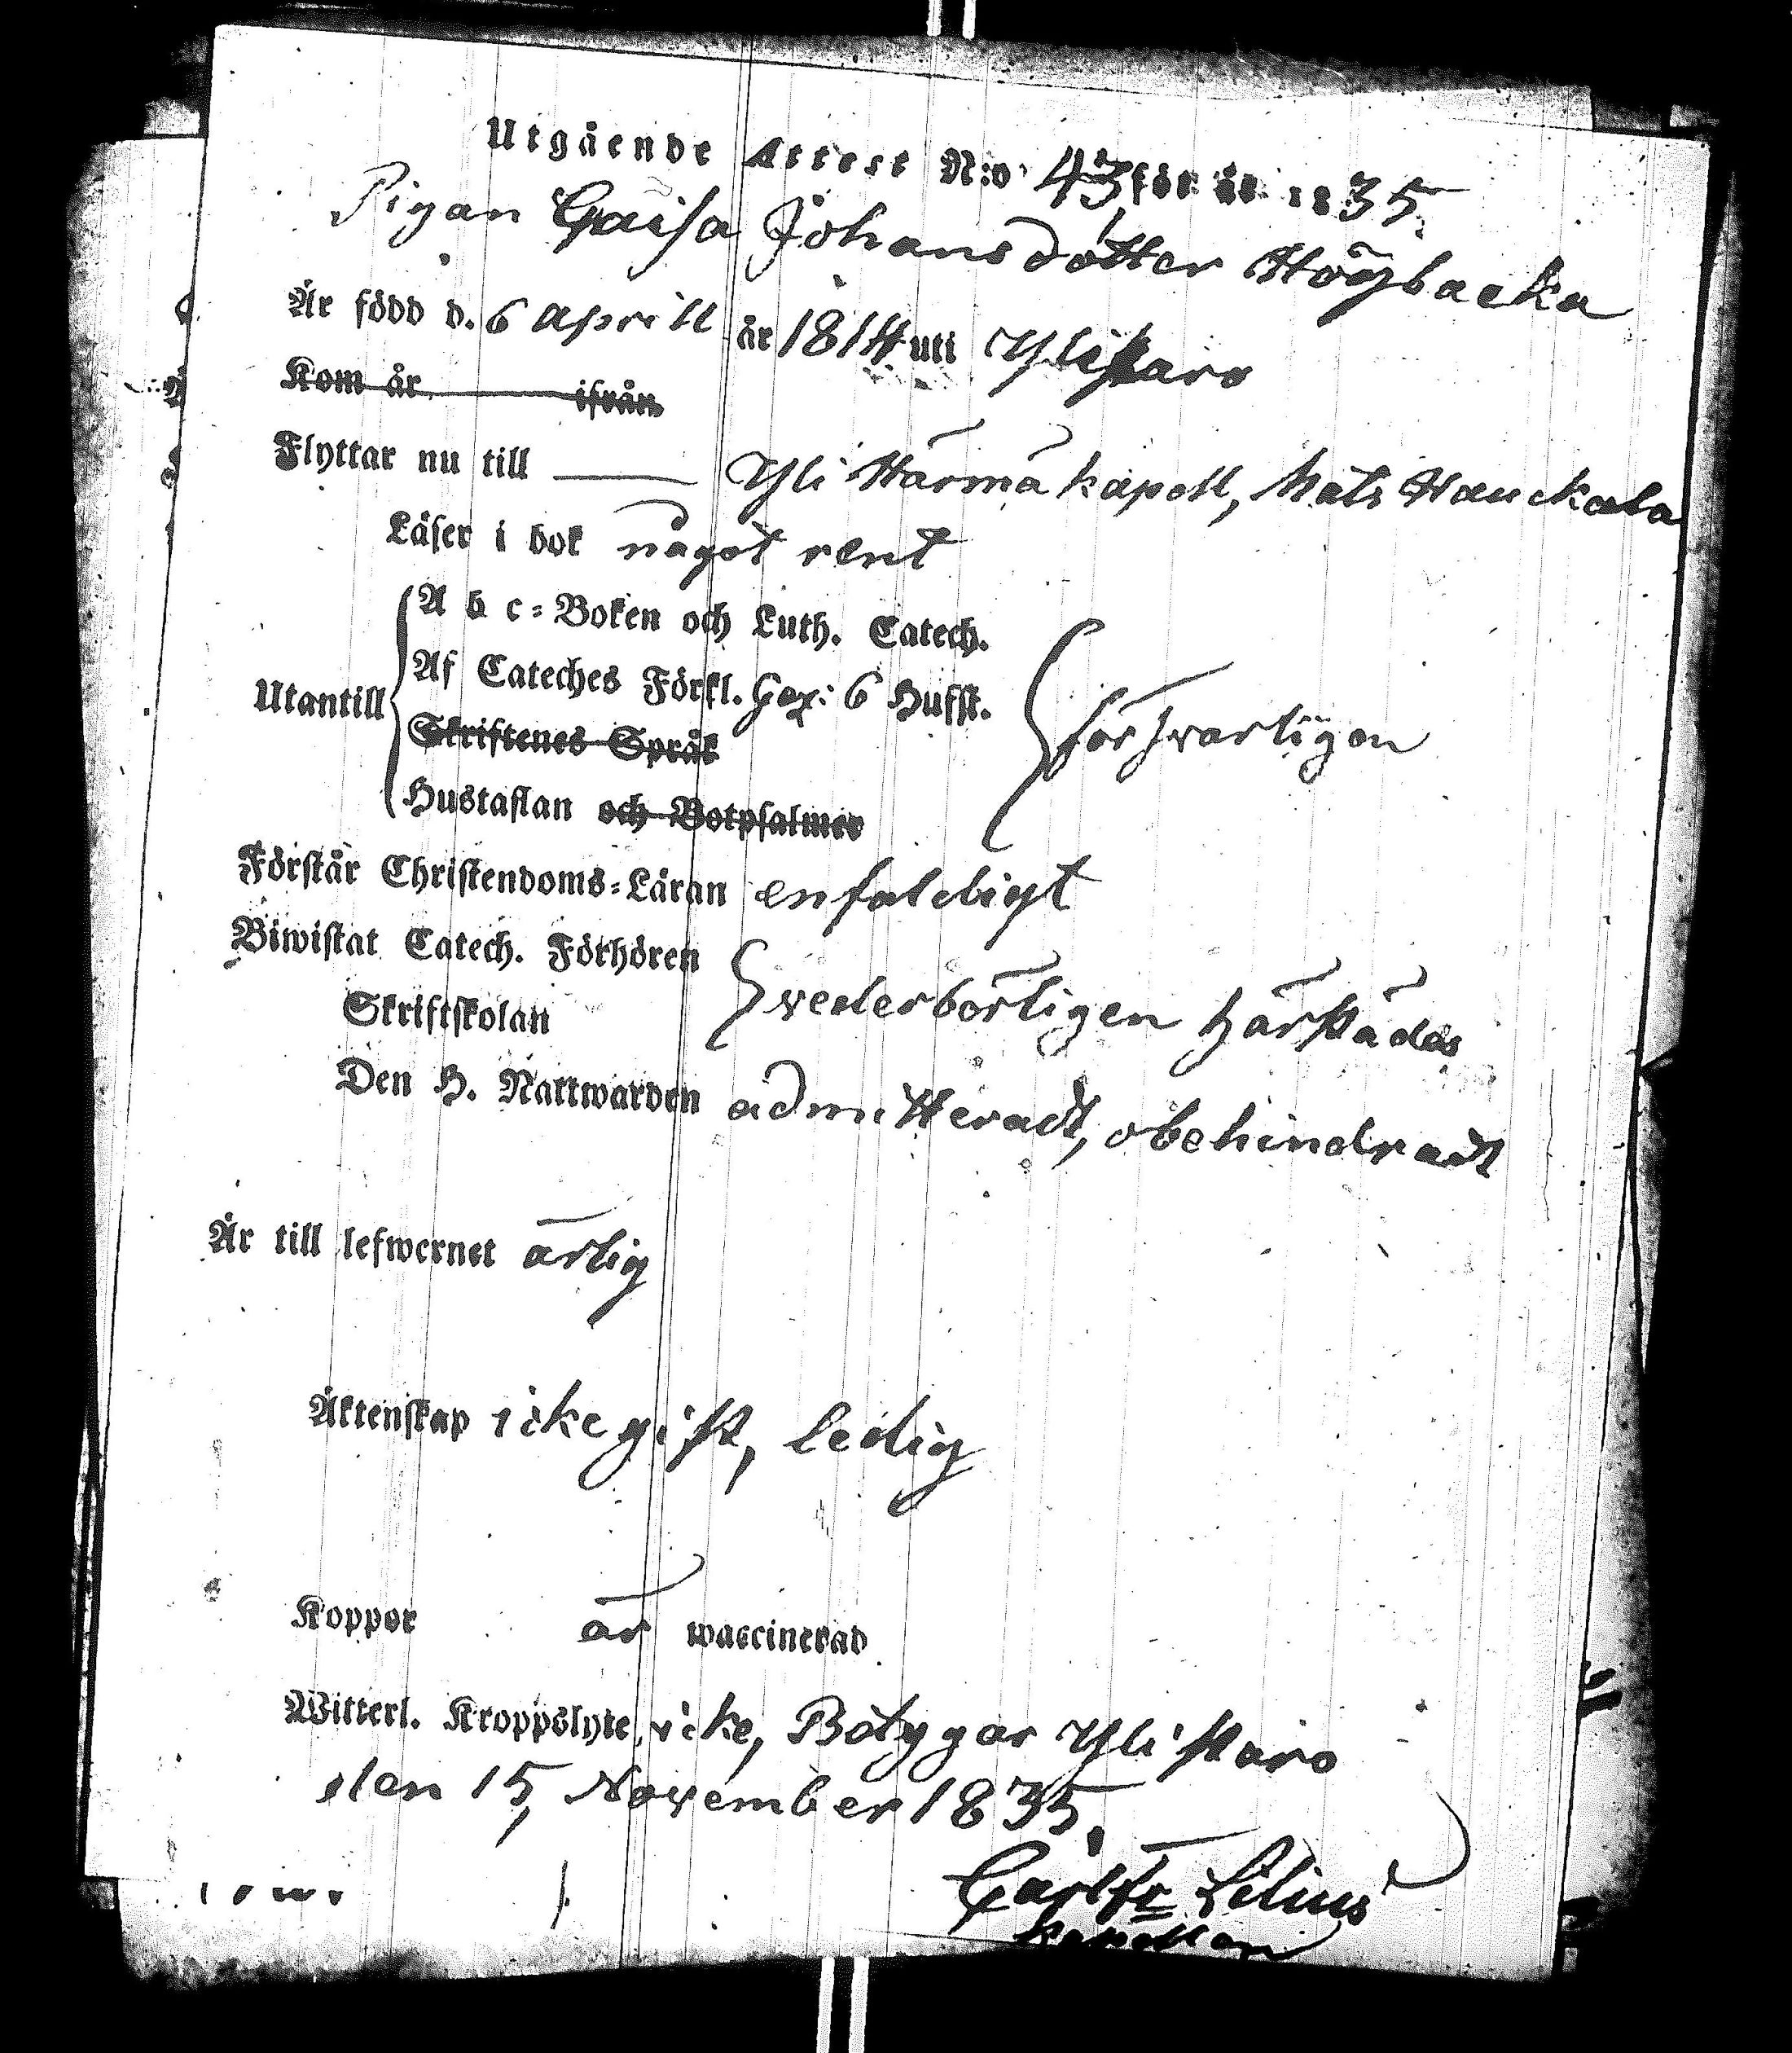 Utgående Attest N:o 43 för år 1835
Pigan Caisa Johansdotter Högbacka
Är född d. 6 Aprill år 1814 uti Ylistaro
Kom år ifrån
Flyttar nu till Yli Härmä kapell, Mats Hauckala
Läser i bok något rent
A b c-Boken och Luth. Catech.
Af Cateches Förkl. 6 Hufst.
Utantill försvarligen
Skriftenes Språk
Hustaflan och Botpsalmer
Förstår Christendoms-Läran enfaldigt
Biwistat Catech. Förhören
Skriftskolan vederbörligen härstädes
Den H. Nattwarden admitterad, obehindrad
Är till lefwernet ärlig
Äktenskap icke gift, ledig
Koppor är waccinerad
Witterl. Kroppslyte icke, Betygar Ylistaro
den 15 November 1835.
Carl Fr Lilius
kapellan